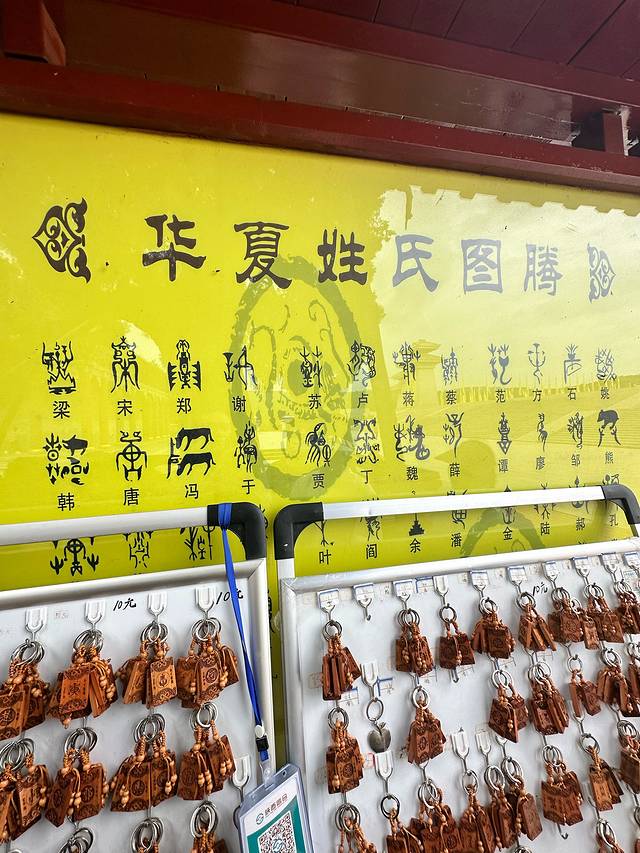 华夏姓氏图腾
梁 宋 郑 谢 苏 卢 蒋 蔡 范 方 石 姚
韩 唐 冯 于 贾 丁 魏 薛 谭 廖 邹 熊
叶 阎 余 潘 金 陆 郝 孔
10元 10元